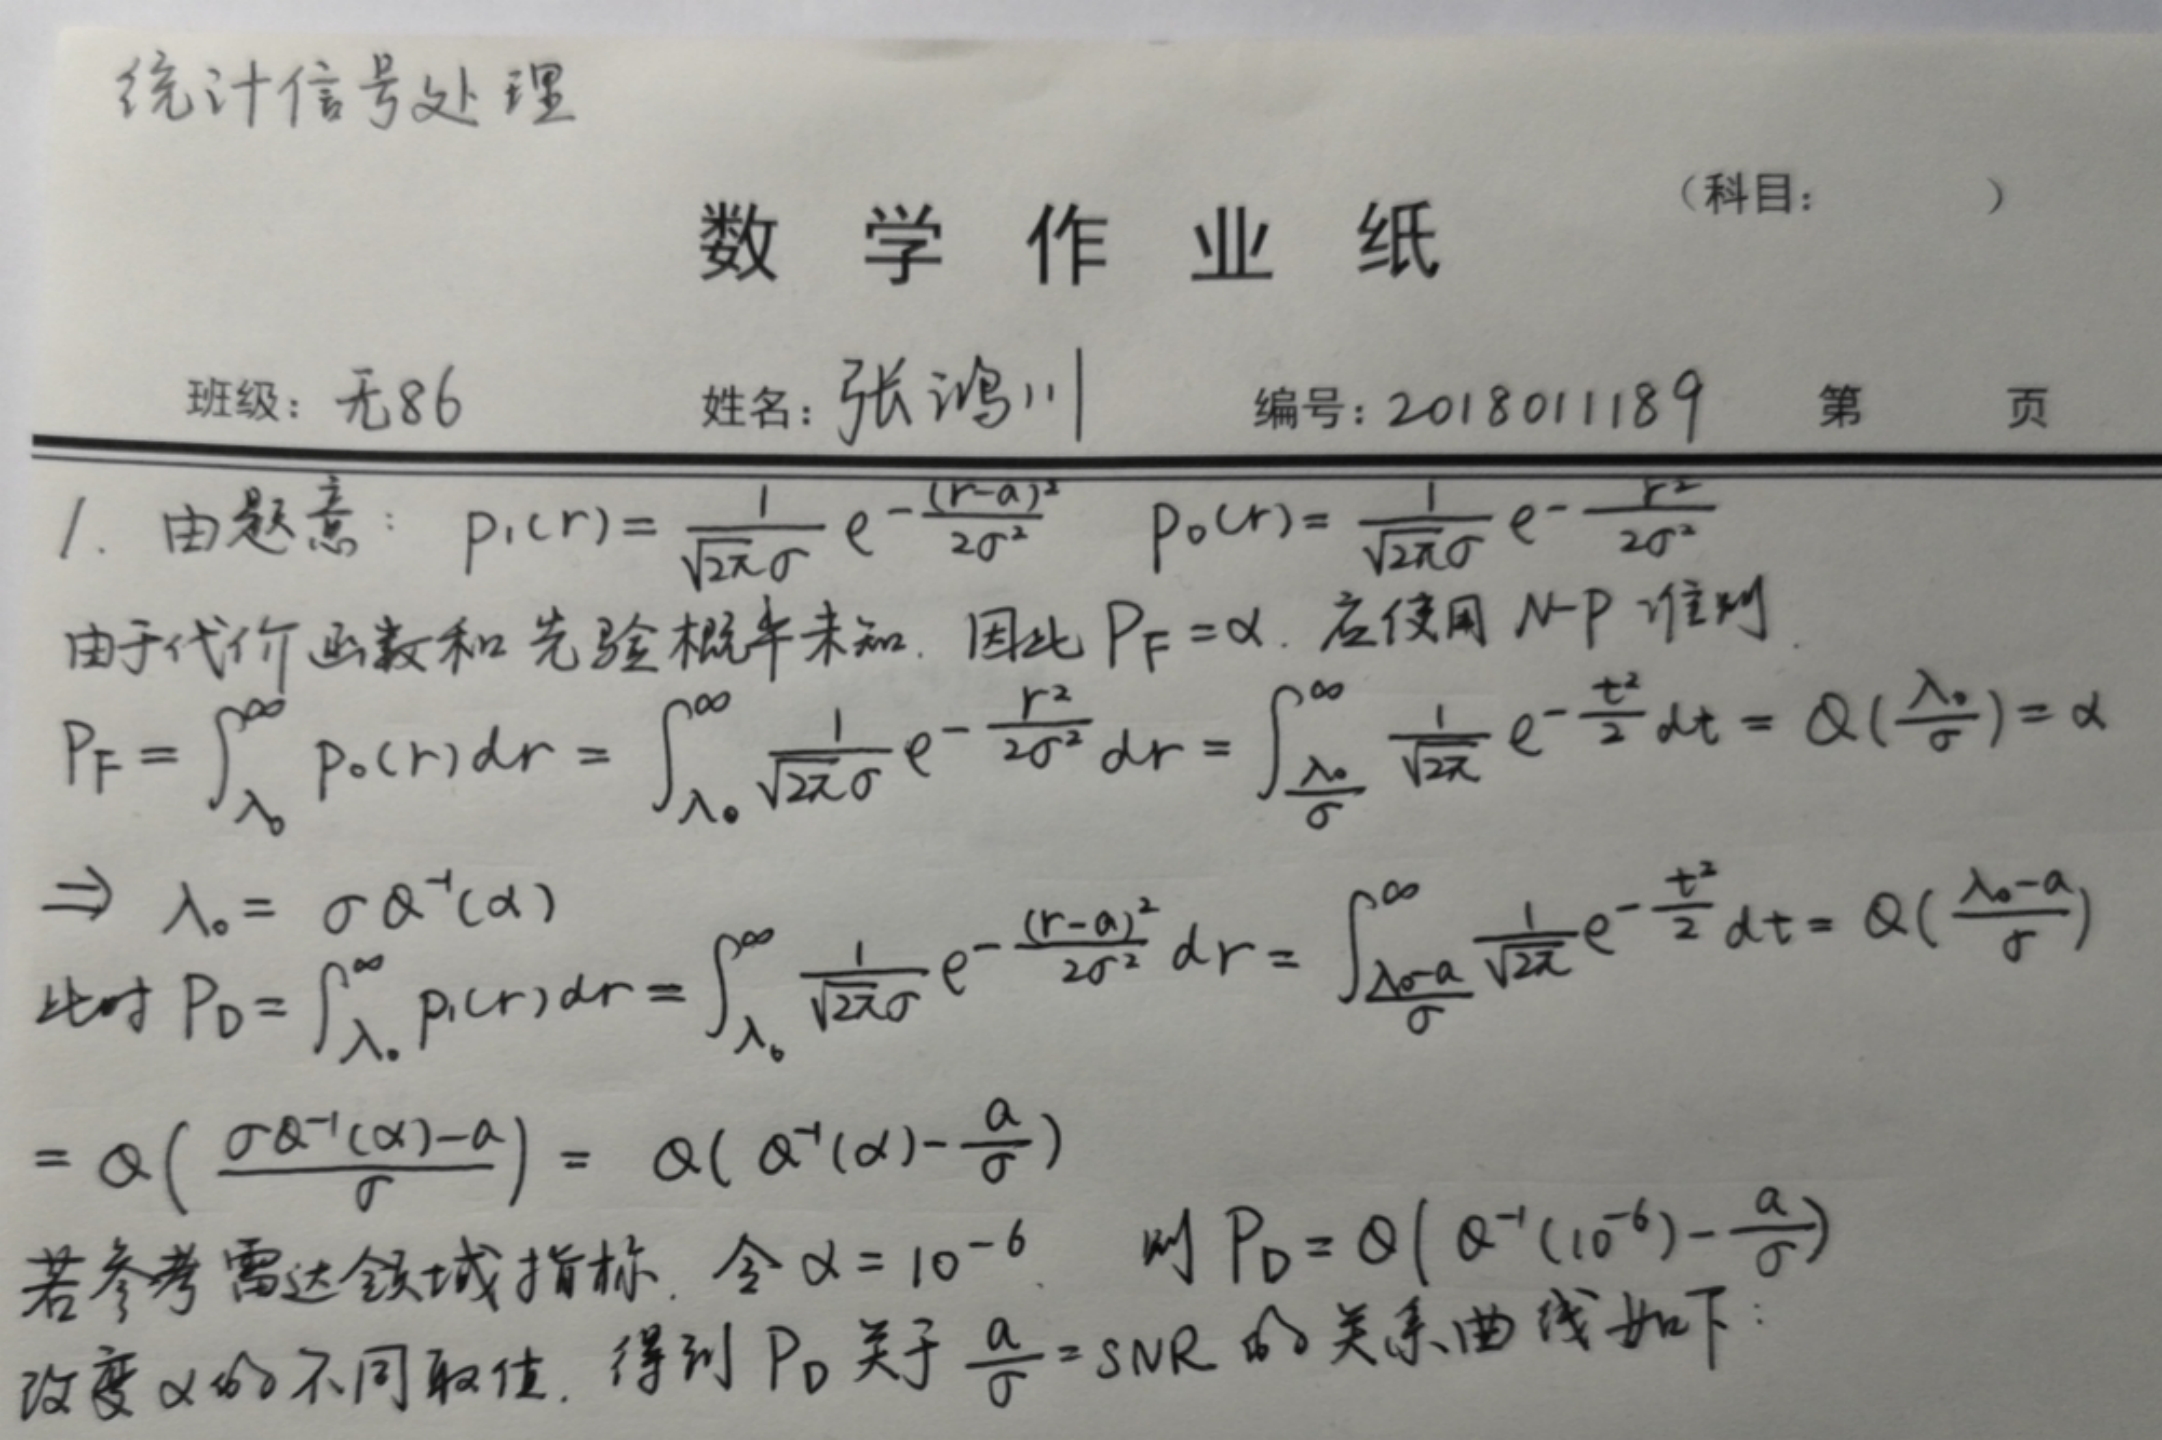 统计信号处理
（科目：　　）
数学作业纸
班级：无86　姓名：张鸿川　编号：2018011189　第　页
1. 由题意：p₁(r) = \frac{1}{\sqrt{2π}σ} e^{-\frac{(r-a)²}{2σ²}}　p₀(r) = \frac{1}{\sqrt{2π}σ} e^{-\frac{r²}{2σ²}}
由于代价函数和先验概率未知. 因此 P_F = α. 应使用 N-P 准则.
P_F = ∫_{λ₀}^{∞} p₀(r)dr = ∫_{λ₀}^{∞} \frac{1}{\sqrt{2π}σ} e^{-\frac{r²}{2σ²}} dr = ∫_{\frac{λ₀}{σ}}^{∞} \frac{1}{\sqrt{2π}} e^{-\frac{t²}{2}} dt = Q(\frac{λ₀}{σ}) = α
⇒ λ₀ = σQ⁻¹(α)
此时 P_D = ∫_{λ₀}^{∞} p₁(r)dr = ∫_{λ₀}^{∞} \frac{1}{\sqrt{2π}σ} e^{-\frac{(r-a)²}{2σ²}} dr = ∫_{\frac{λ₀-a}{σ}}^{∞} \frac{1}{\sqrt{2π}} e^{-\frac{t²}{2}} dt = Q(\frac{λ₀-a}{σ})
= Q(\frac{σQ⁻¹(α)-a}{σ}) = Q(Q⁻¹(α)-\frac{a}{σ})
若参考雷达领域指标. 令 α = 10⁻⁶. 则 P_D = Q(Q⁻¹(10⁻⁶)-\frac{a}{σ})
改变α的不同取值. 得到 P_D 关于 \frac{a}{σ} = SNR 的关系曲线如下：